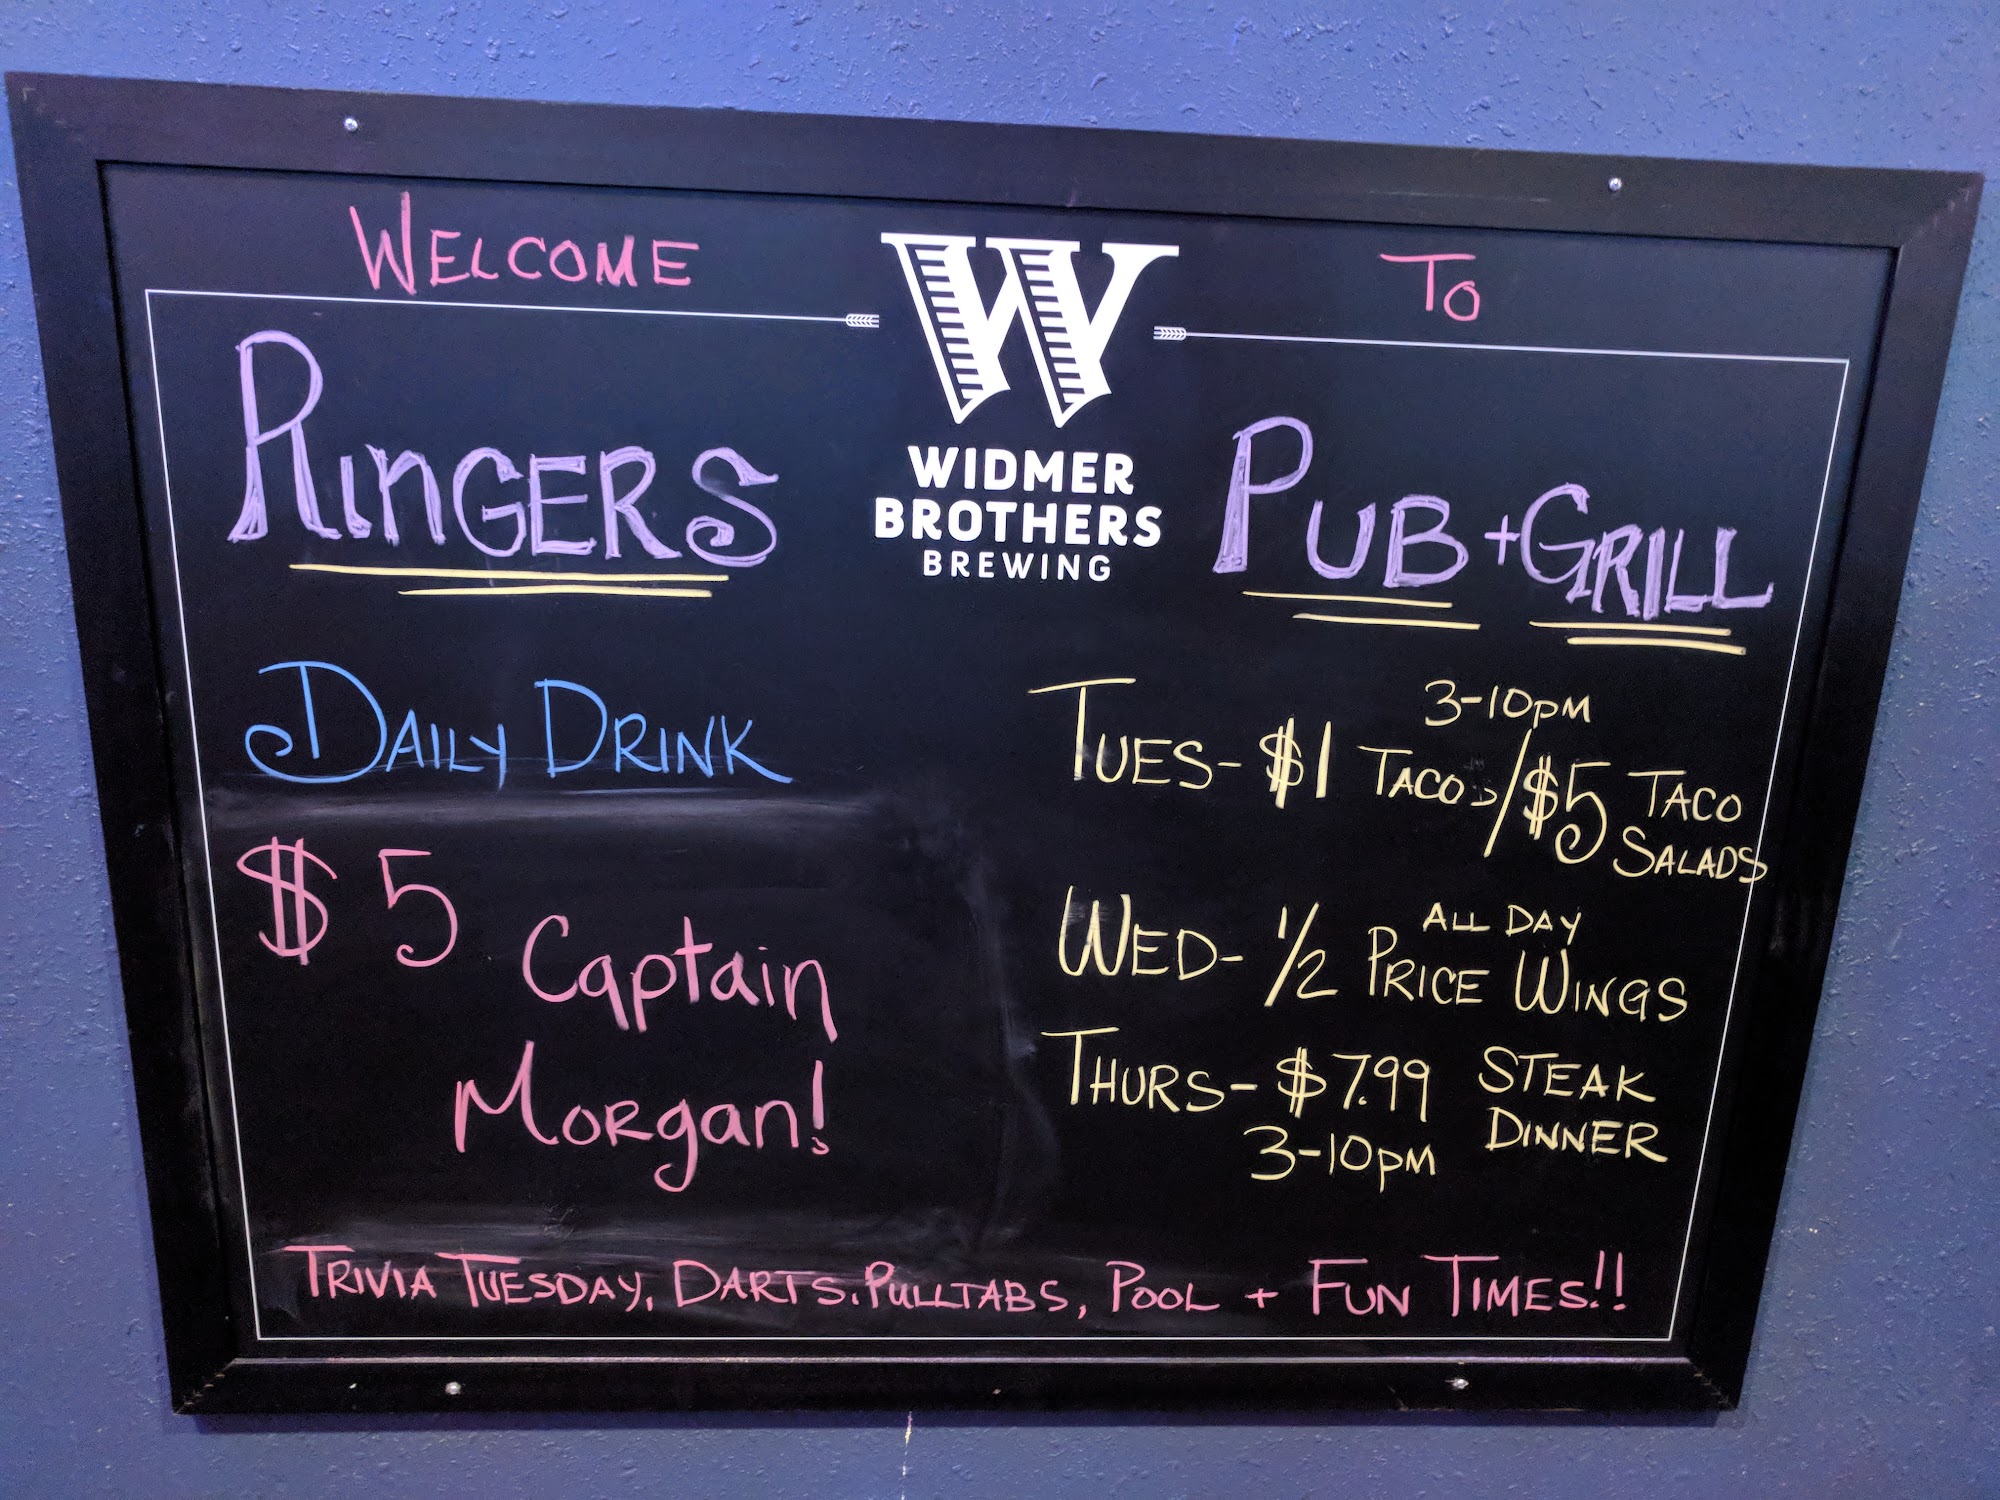 WELCOME TO
W
WIDMER
BROTHERS
BREWING
RINGERS PUB + GRILL
DAILY DRINK
$5 Captain
Morgan!
3-10PM
TUES- $1 TACOS/$5 TACO
SALADS
ALL DAY
WED- 1/2 PRICE WINGS
THURS- $7.99 STEAK
3-10PM DINNER
TRIVIA TUESDAY, DARTS, PULLTABS, POOL + FUN TIMES!!